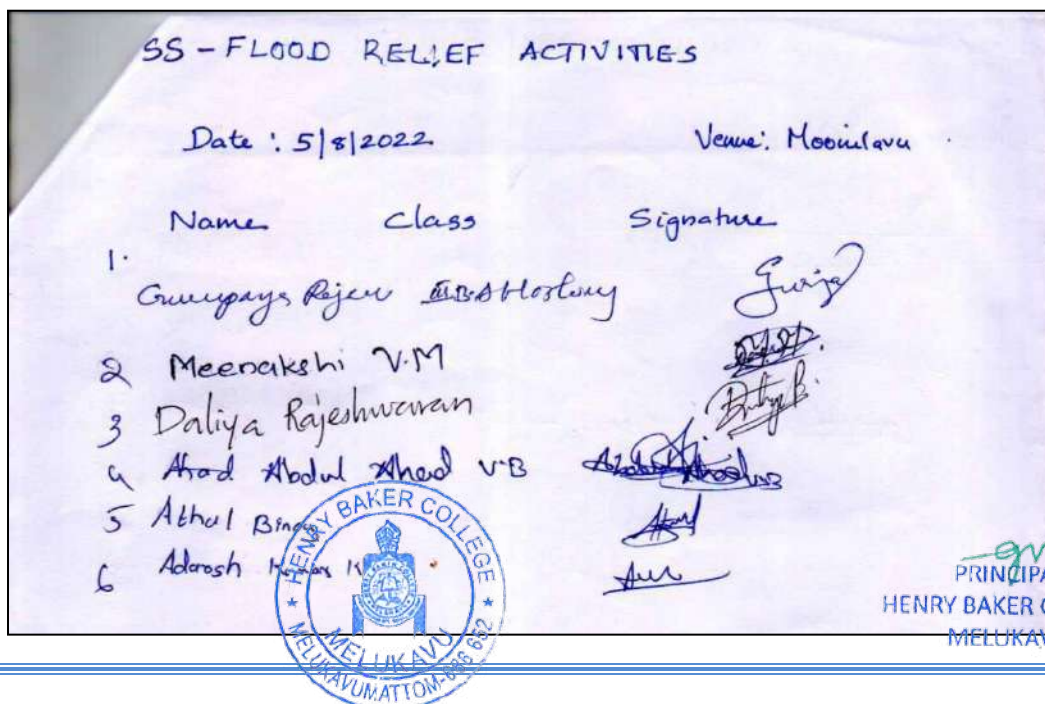 SS - FLOOD RELIEF ACTIVITIES
Date : 5/8/2022 Venue: Moonilavu
Name Class Signature
1.
Rejew III BA History
2 Meenakshi V.M
3 Daliya Rajeshwaran
4 Ahad Abdul Ahad V.B
5 Athul Binoy
6 Adarosh
HENRY BAKER COLLEGE
MELUKAVU
MELUKAVUMATTOM-686 652
PRINCIPA
HENRY BAKER C
MELUKAV